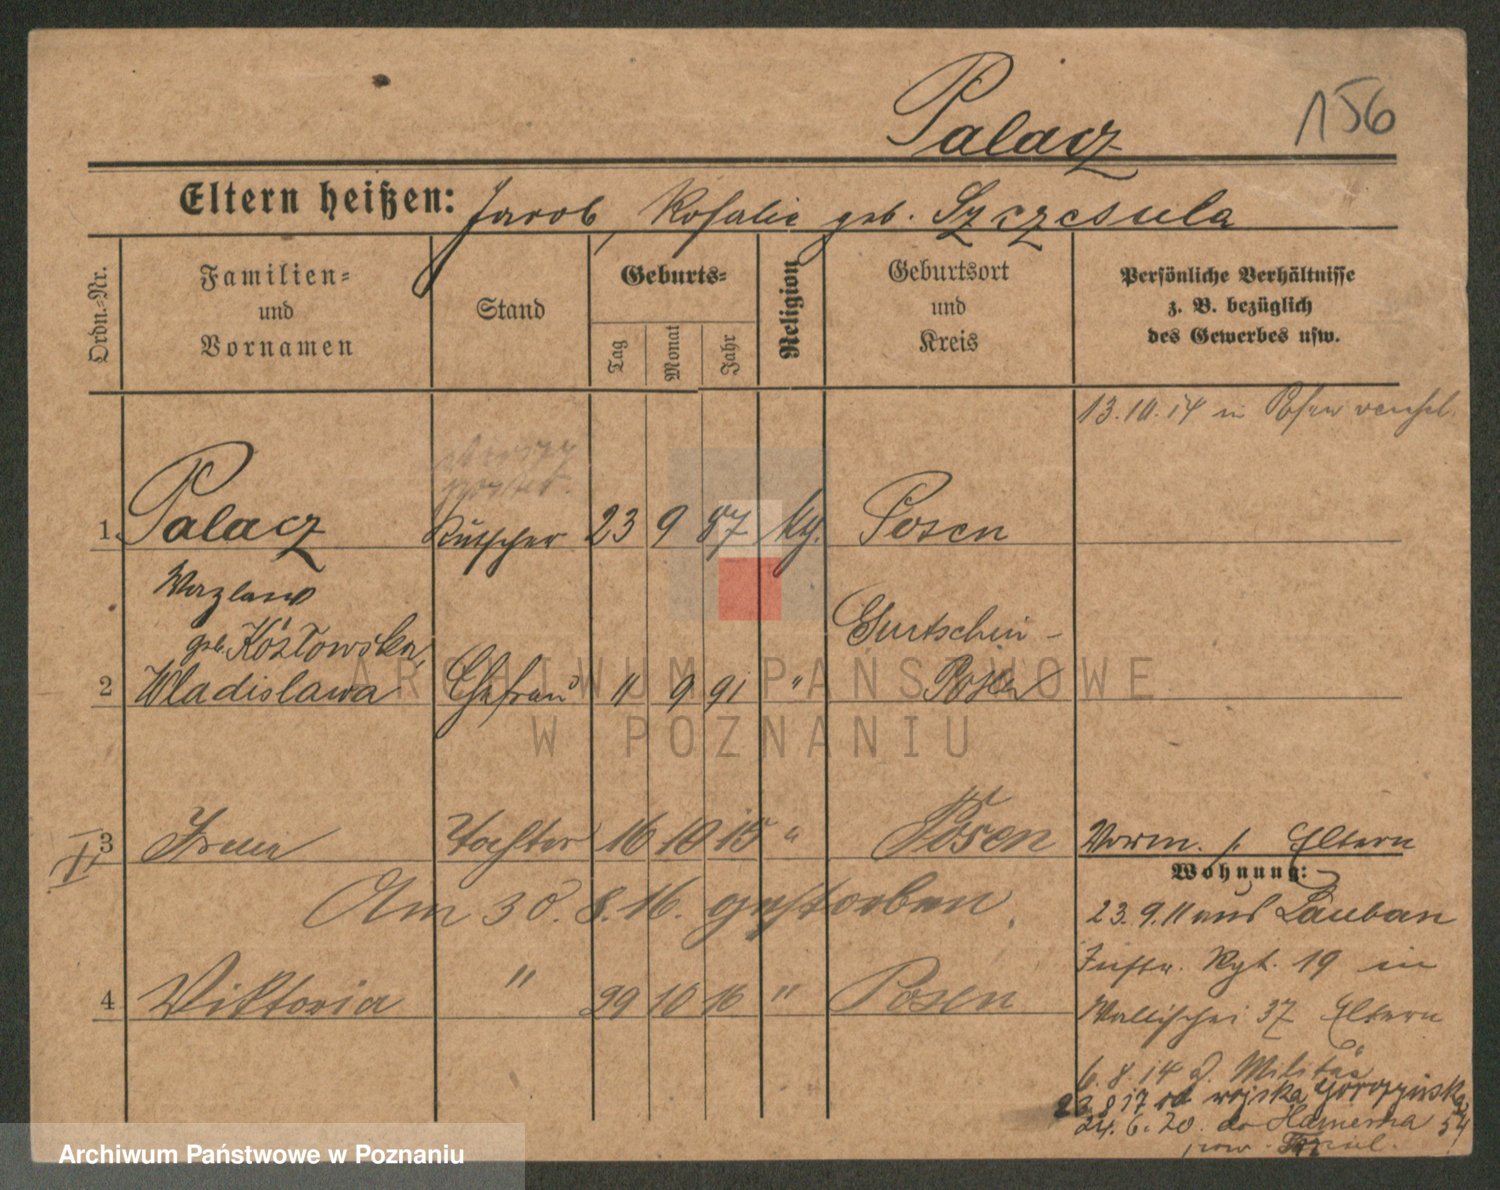 Palacz
156
Eltern heißen: Jacob, Rosalie geb. Szczesula
Ordn.-Nr.
Familien-
und
Vornamen
Stand
Geburts-
Tag
Monat
Jahr
Religion
Geburtsort
und
Kreis
Persönliche Verhältnisse
z. B. bezüglich
des Gewerbes usw.
13.10.14 in Posen
1. Palacz Kutscher 23 9 87 Posen
Wazlaw
geb. Kózłowska,
Gurtschin -
2 Wladislawa Ehefrau 11 9 91 " Posen
3 Irene Tochter 16 10 15 " Posen
Vorm. s. Eltern
Am 30. 8. 16. gestorben.
Wohnung:
23.9.11 aus Lauban
Inftr. Rgt. 19 in
4 Viktoria " 29 10 16 " Posen
Wallischei 37 Eltern
6.8.14 z. Militär
17 od wojska
24.6.20. do
ARCHIWUM PAŃSTWOWE
W POZNANIU
Archiwum Państwowe w Poznaniu